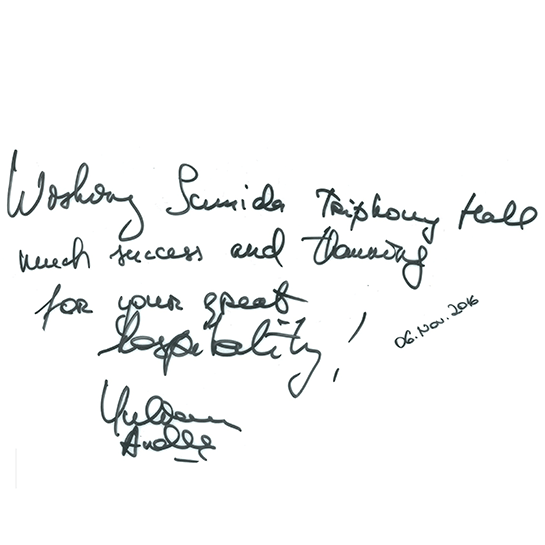 Wishing Sumida Triphony Hall
much success and thanking
for your great
hospitality!
06. Nov. 2016
Yuldum